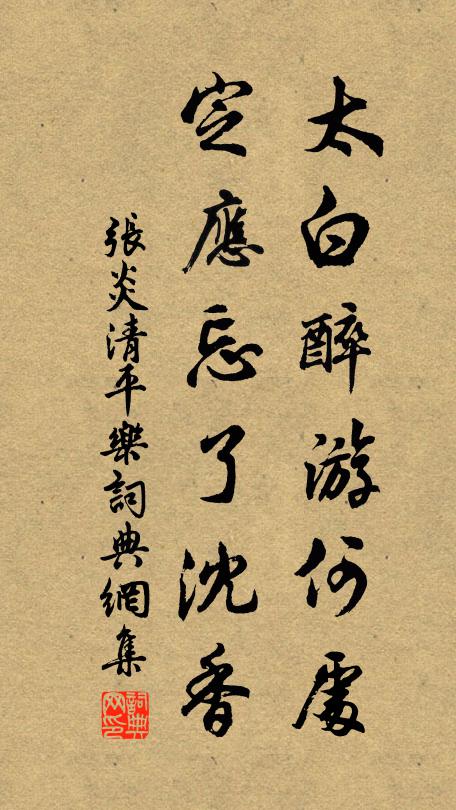 太白醉游何處
定應忘了沈香
張炎清平樂詞典網集
詞典网印